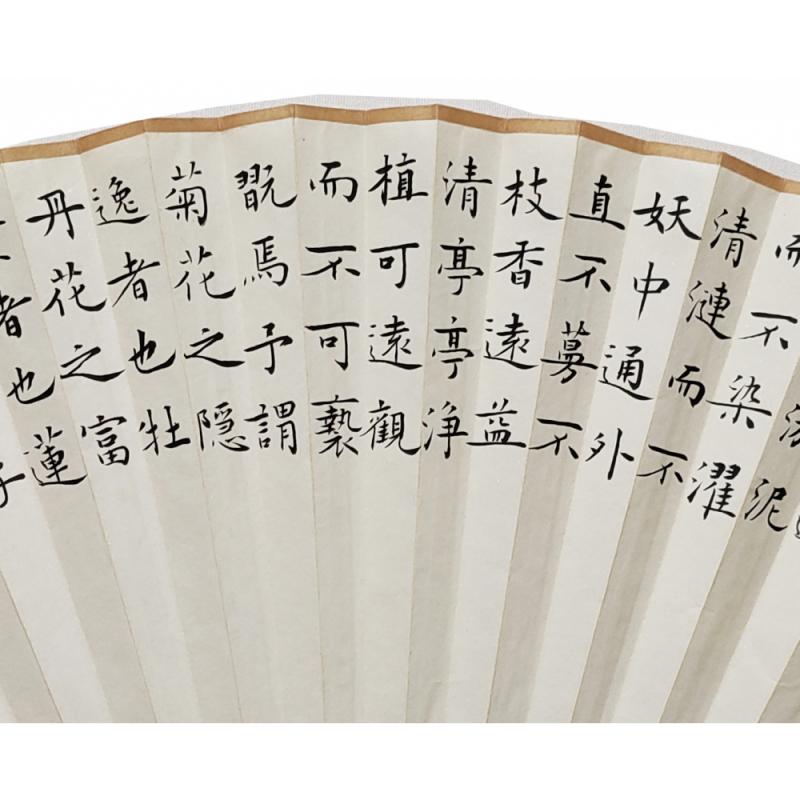 泥
而不染濯
清漣而不
妖中通外
直不蔓不
枝香遠益
清亭亭浄
植可遠觀
而不可褻
翫焉予謂
菊花之隠
逸者也牡
丹花之富
者也蓮
子